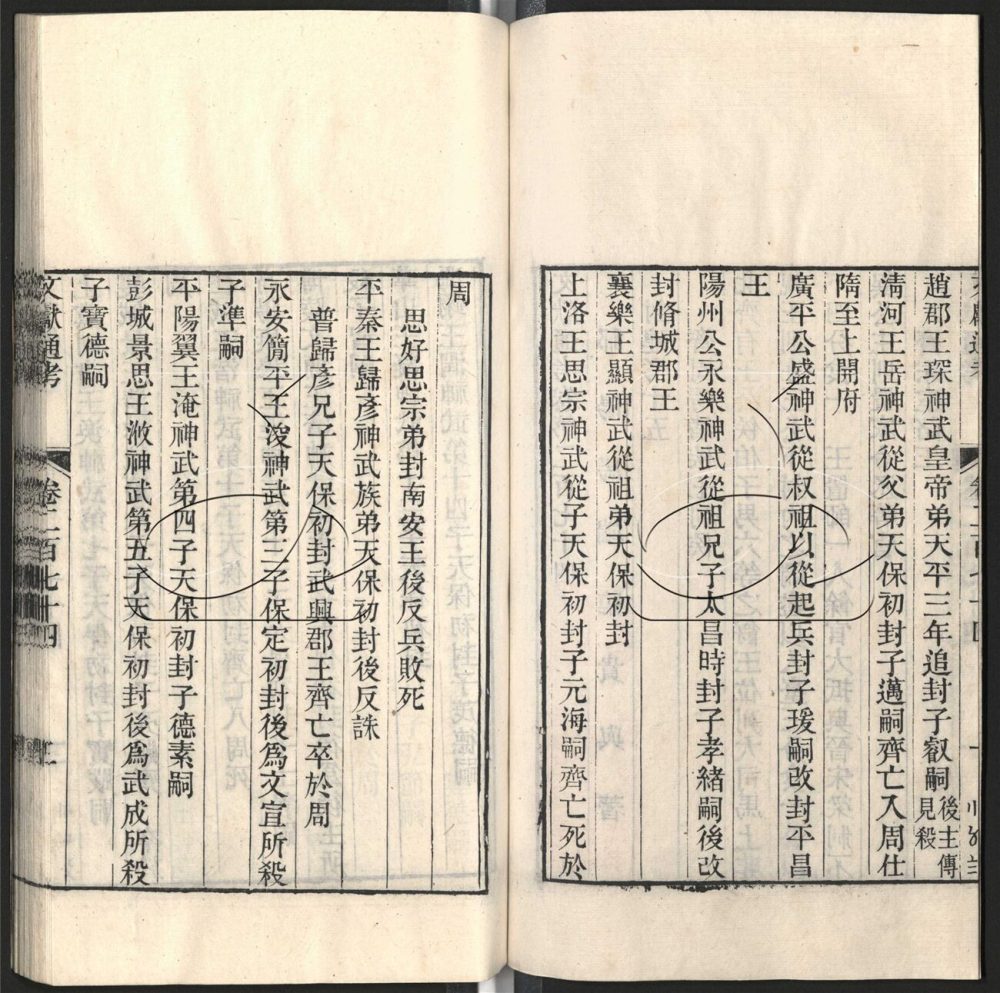 趙郡王琛神武皇帝弟天平三年追封子叡嗣後主傳見殺
淸河王岳神武從父弟天保初封子邁嗣齊亡入周仕
隋至上開府
廣平公盛神武從叔祖以從起兵封子瑗嗣改封平昌
王
陽州公永樂神武從祖兄子太昌時封子孝緒嗣後改
封脩城郡王
襄樂王顯神武從祖弟天保初封
上洛王思宗神武從子天保初封子元海嗣齊亡死於
周
思好思宗弟封南安王後反兵敗死
平秦王歸彥神武族弟天保初封後反誅
普歸彥兄子天保初封武興郡王齊亡卒於周
永安簡平王浚神武第三子保定初封後爲文宣所殺
子準嗣
平陽翼王淹神武第四子天保初封子德素嗣
彭城景思王浟神武第五子天保初封後爲武成所殺
子寶德嗣
文獻通考 卷二百七十四